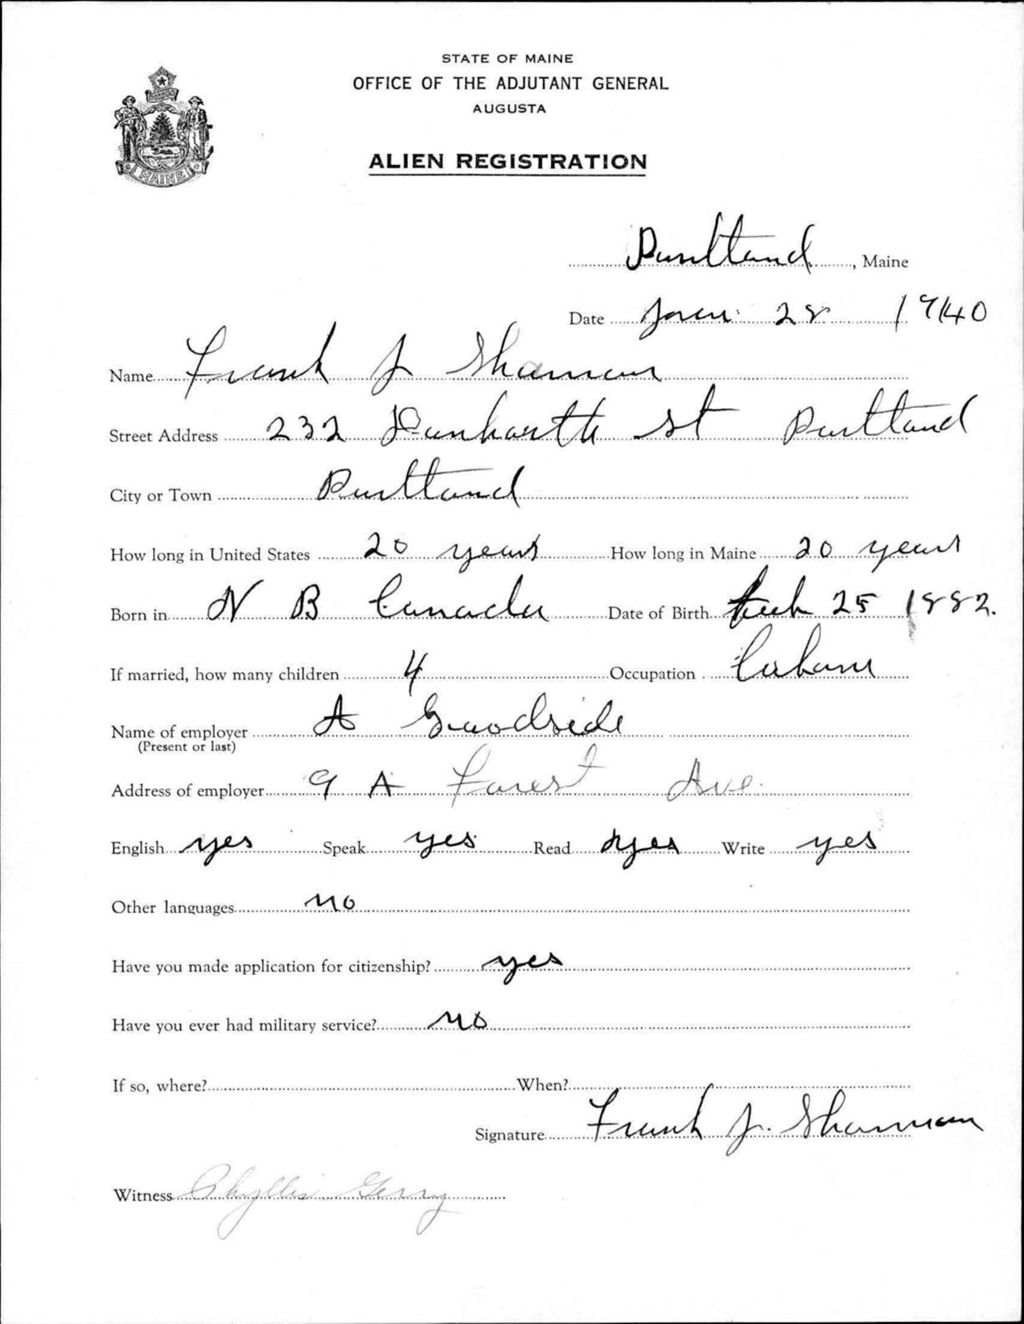 STATE OF MAINE
OFFICE OF THE ADJUTANT GENERAL
AUGUSTA
MAINE
ALIEN REGISTRATION
Portland, Maine
Date Jan. 28 1940
Name Frank J Shannon
Street Address 232 Danforth St Portland
City or Town Portland
How long in United States 20 years How long in Maine 20 years
Born in N B Canada Date of Birth Feb 25 1882.
If married, how many children 4 Occupation
Name of employer A Goodside
(Present or last)
Address of employer 9 A Forest Ave.
English yes Speak yes Read yes Write yes
Other languages no
Have you made application for citizenship? yes
Have you ever had military service? no
If so, where? When?
Signature Frank J. Shannon
Witness Phyllis Gerry